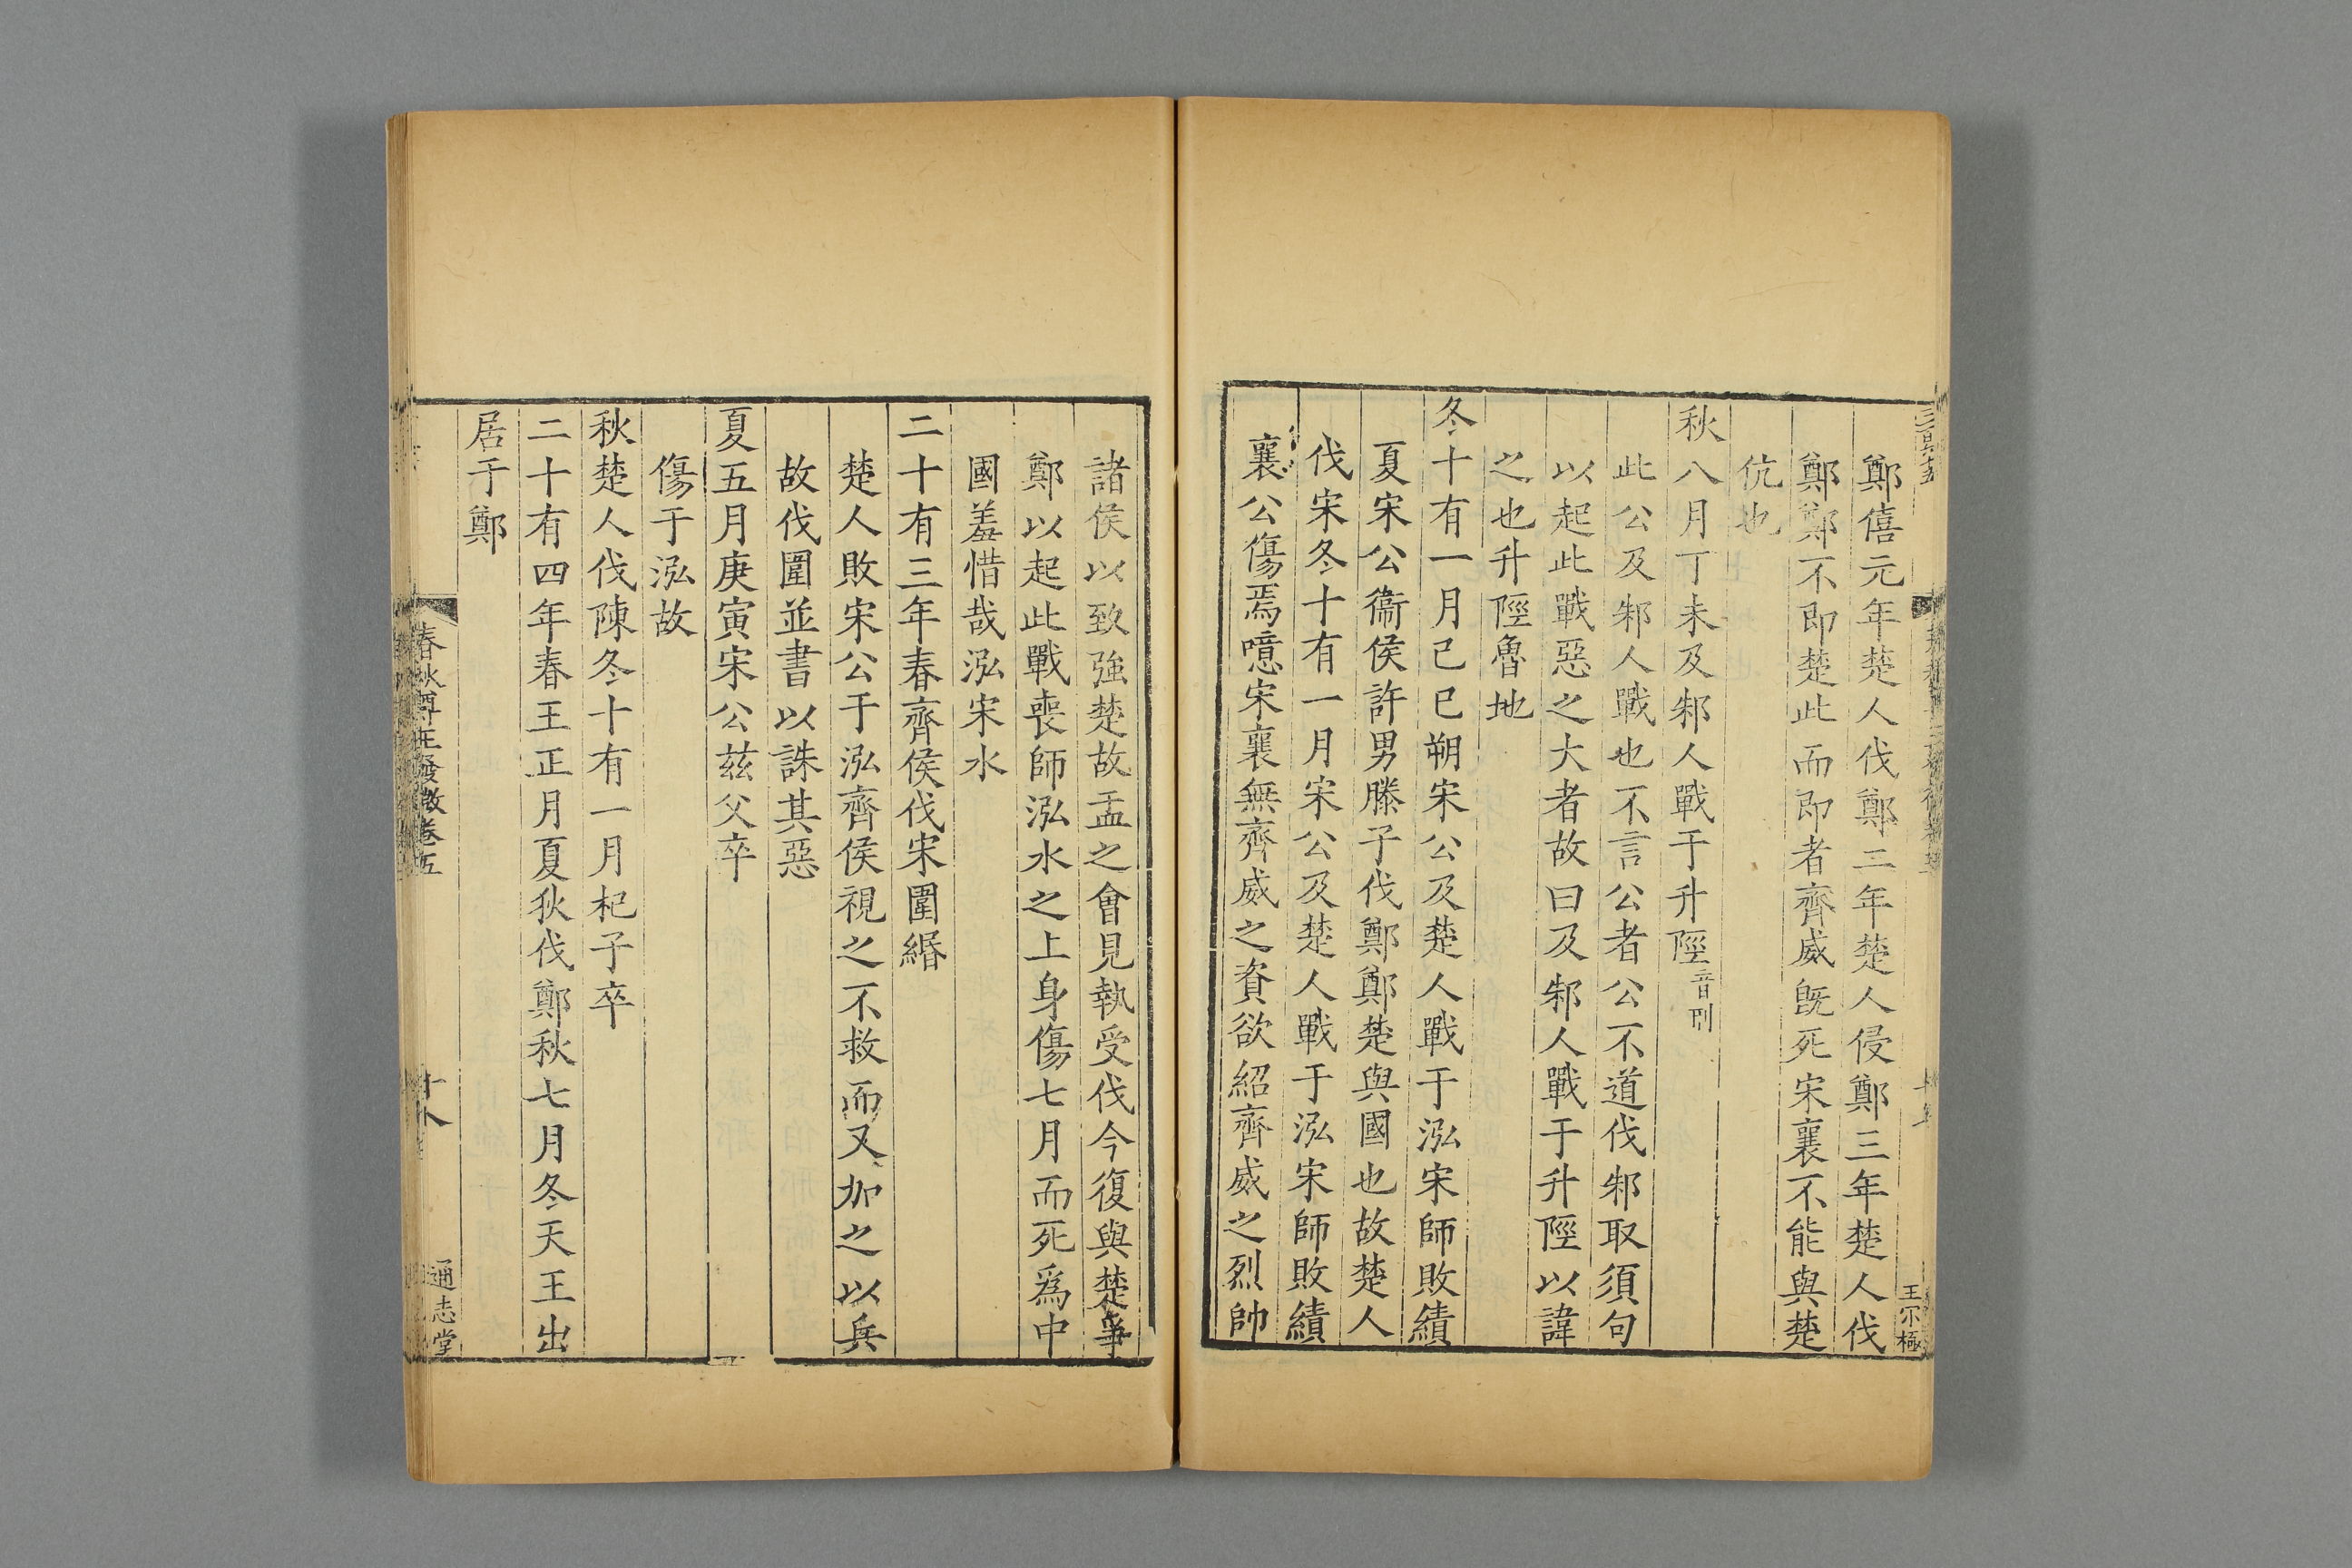 鄭僖元年楚人伐鄭二年楚人侵鄭三年楚人伐
鄭鄭不即楚此而即者齊威旣死宋襄不能與楚
伉也
秋八月丁未及邾人戰于升陘音刑
此公及邾人戰也不言公者公不道伐邾取須句
以起此戰惡之大者故曰及邾人戰于升陘以諱
之也升陘魯地
冬十有一月己巳朔宋公及楚人戰于泓宋師敗績
夏宋公衞侯許男滕子伐鄭鄭楚與國也故楚人
伐宋冬十有一月宋公及楚人戰于泓宋師敗績
襄公傷焉噫宋襄無齊威之資欲紹齊威之烈帥
王尒極
諸侯以致強楚故盂之會見執受伐今復與楚爭
鄭以起此戰喪師泓水之上身傷七月而死爲中
國羞惜哉泓宋水
二十有三年春齊侯伐宋圍緡
楚人敗宋公于泓齊侯視之不救而又加之以兵
故伐圍並書以誅其惡
夏五月庚寅宋公茲父卒
傷于泓故
秋楚人伐陳冬十有一月杞子卒
二十有四年春王正月夏狄伐鄭秋七月冬天王出
居于鄭
春秋尊王發微卷五
十八
通志堂